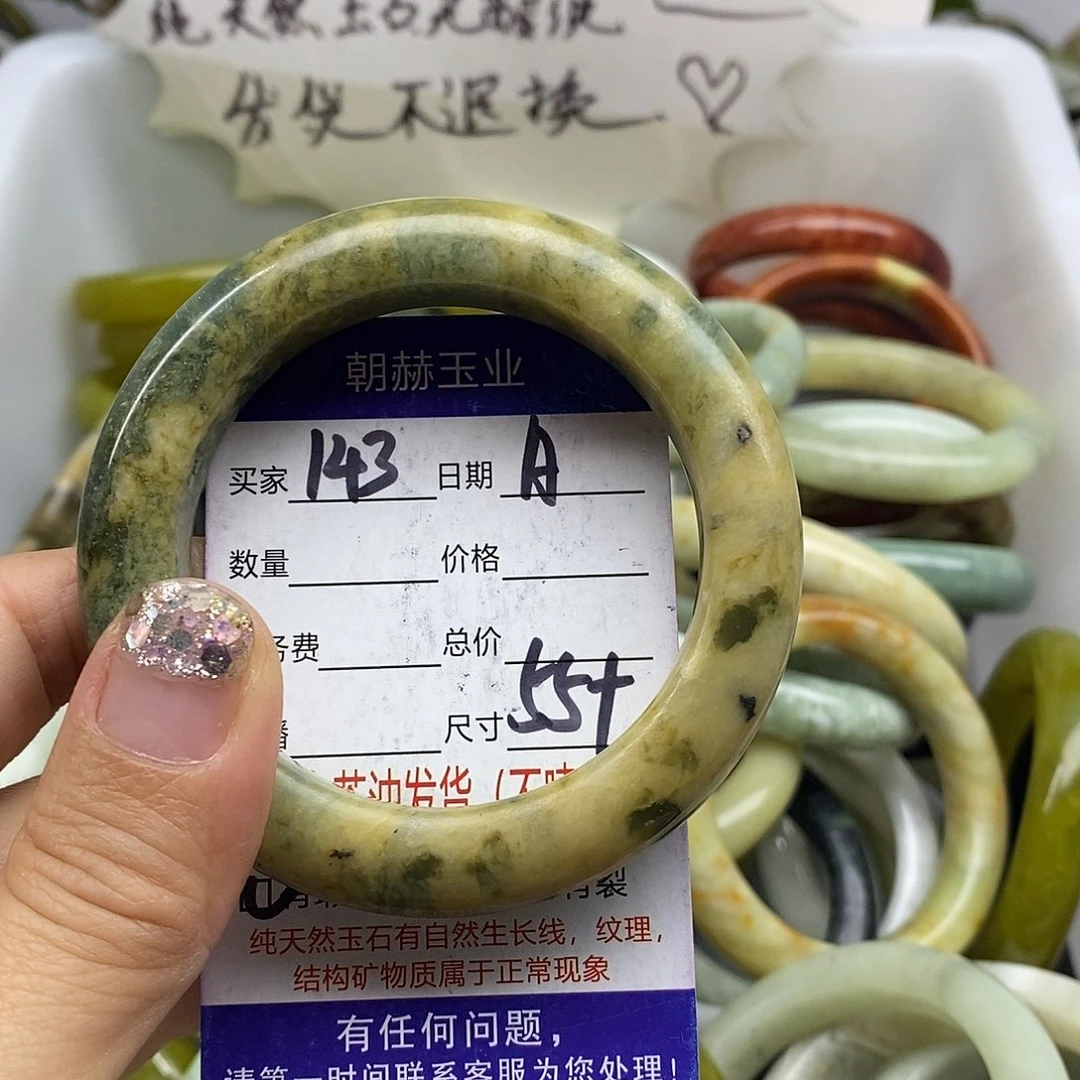 纯天然玉石无
发货不退换
朝赫玉业
买家 143 日期 A
数量 价格
务费 总价
播
尺寸 55+
蓝油发货(不
纯天然玉石有自然生长线,纹理,
结构矿物质属于正常现象
有任何问题,
请第一时间联系客服为您处理!